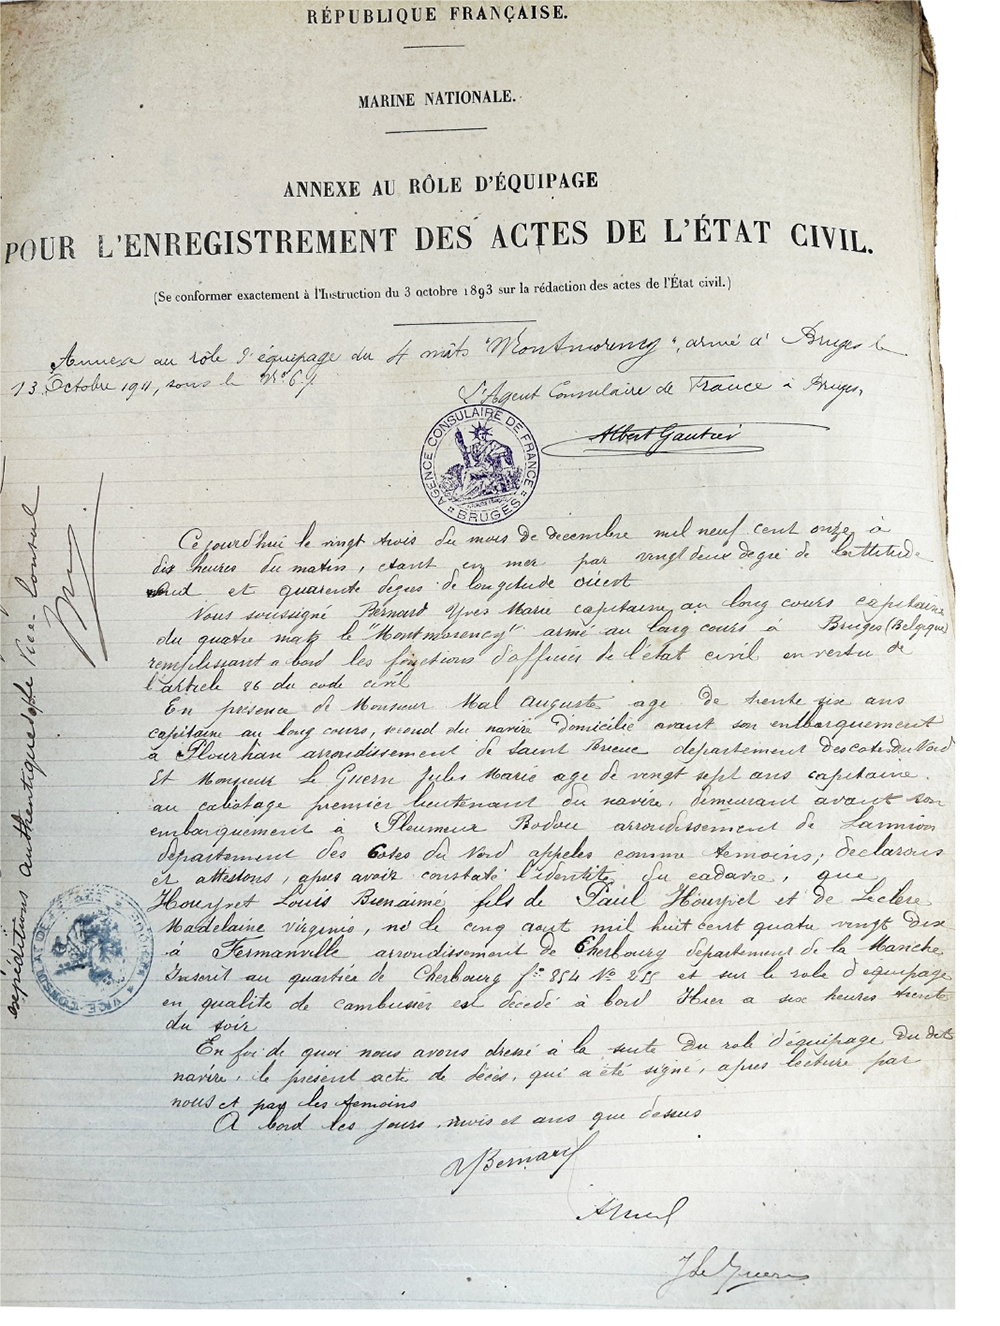 RÉPUBLIQUE FRANÇAISE.
MARINE NATIONALE.
ANNEXE AU RÔLE D'ÉQUIPAGE
POUR L'ENREGISTREMENT DES ACTES DE L'ÉTAT CIVIL.
(Se conformer exactement à l'Instruction du 3 octobre 1893 sur la rédaction des actes de l'État civil.)
Annexe au rôle d'équipage du 4 mâts "Montmorency", armé à Bruges le
13 Octobre 1911, sous le No 69
L'Agent Consulaire de France à Bruges,
Albert Gautier
AGENCE CONSULAIRE DE FRANCE
BRUGES
Ce jourd'hui le vingt trois du mois de decembre mil neuf cent onze à
dix heures du matin, etant en mer par vingt deux degré de lattitude
nord et quarente degres de longitude ouest
Nous soussigné Bernard Yves Marie capitaine au long cours capitaine
du quatre mats le "Montmorency" armé au long cours à Bruges (Belgique)
remplissant a bord les fonctions d'officier de l'état civil en vertu de
l'article 86 du code civil
En présence de Monsieur Mal auguste age de trente six ans
capitaine au long cours, second du navire domicilié avant son embarquement
à Plourhan arrondissement de Saint Brieuc departement des cotes du Nord
Et Monsieur Le Guern Jules Marie age de vingt sept ans capitaine
au cabotage premier lieutenant du navire, demeurant avant son
embarquement à Pleumeur Bodou arrondissement de Lannion
département des Cotes du Nord appeles comme temoins, declarons
et attestons, apres avoir constaté l'identité du cadavre, que
Houyvet Louis Bienaimé fils de Paul Houyvet et de Leclere
Madelaine Virginie, né le cinq aout mil huit cent quatre vingt dix
à Fermanville arrondissement de Cherbourg département de la Manche
Inscrit au quartier de Cherbourg fo 854 No 255 et sur le role d'équipage
en qualité de cambusier est décédé à bord Hier a six heures trente
du soir
En foi de quoi nous avons dressé à la suite du role d'équipage du dit
navire, le présent acte de décès, qui a été signé, apres lecture par
nous et par les temoins
A bord les jours, mois et ans que dessus
YBernard
AMal
J Le Guern
expéditions authentiques
Vice-Consul
VICE-CONSULAT DE FRANCE